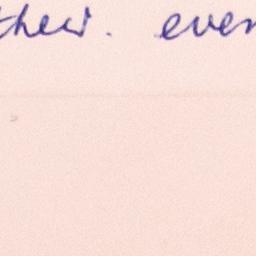 their. even